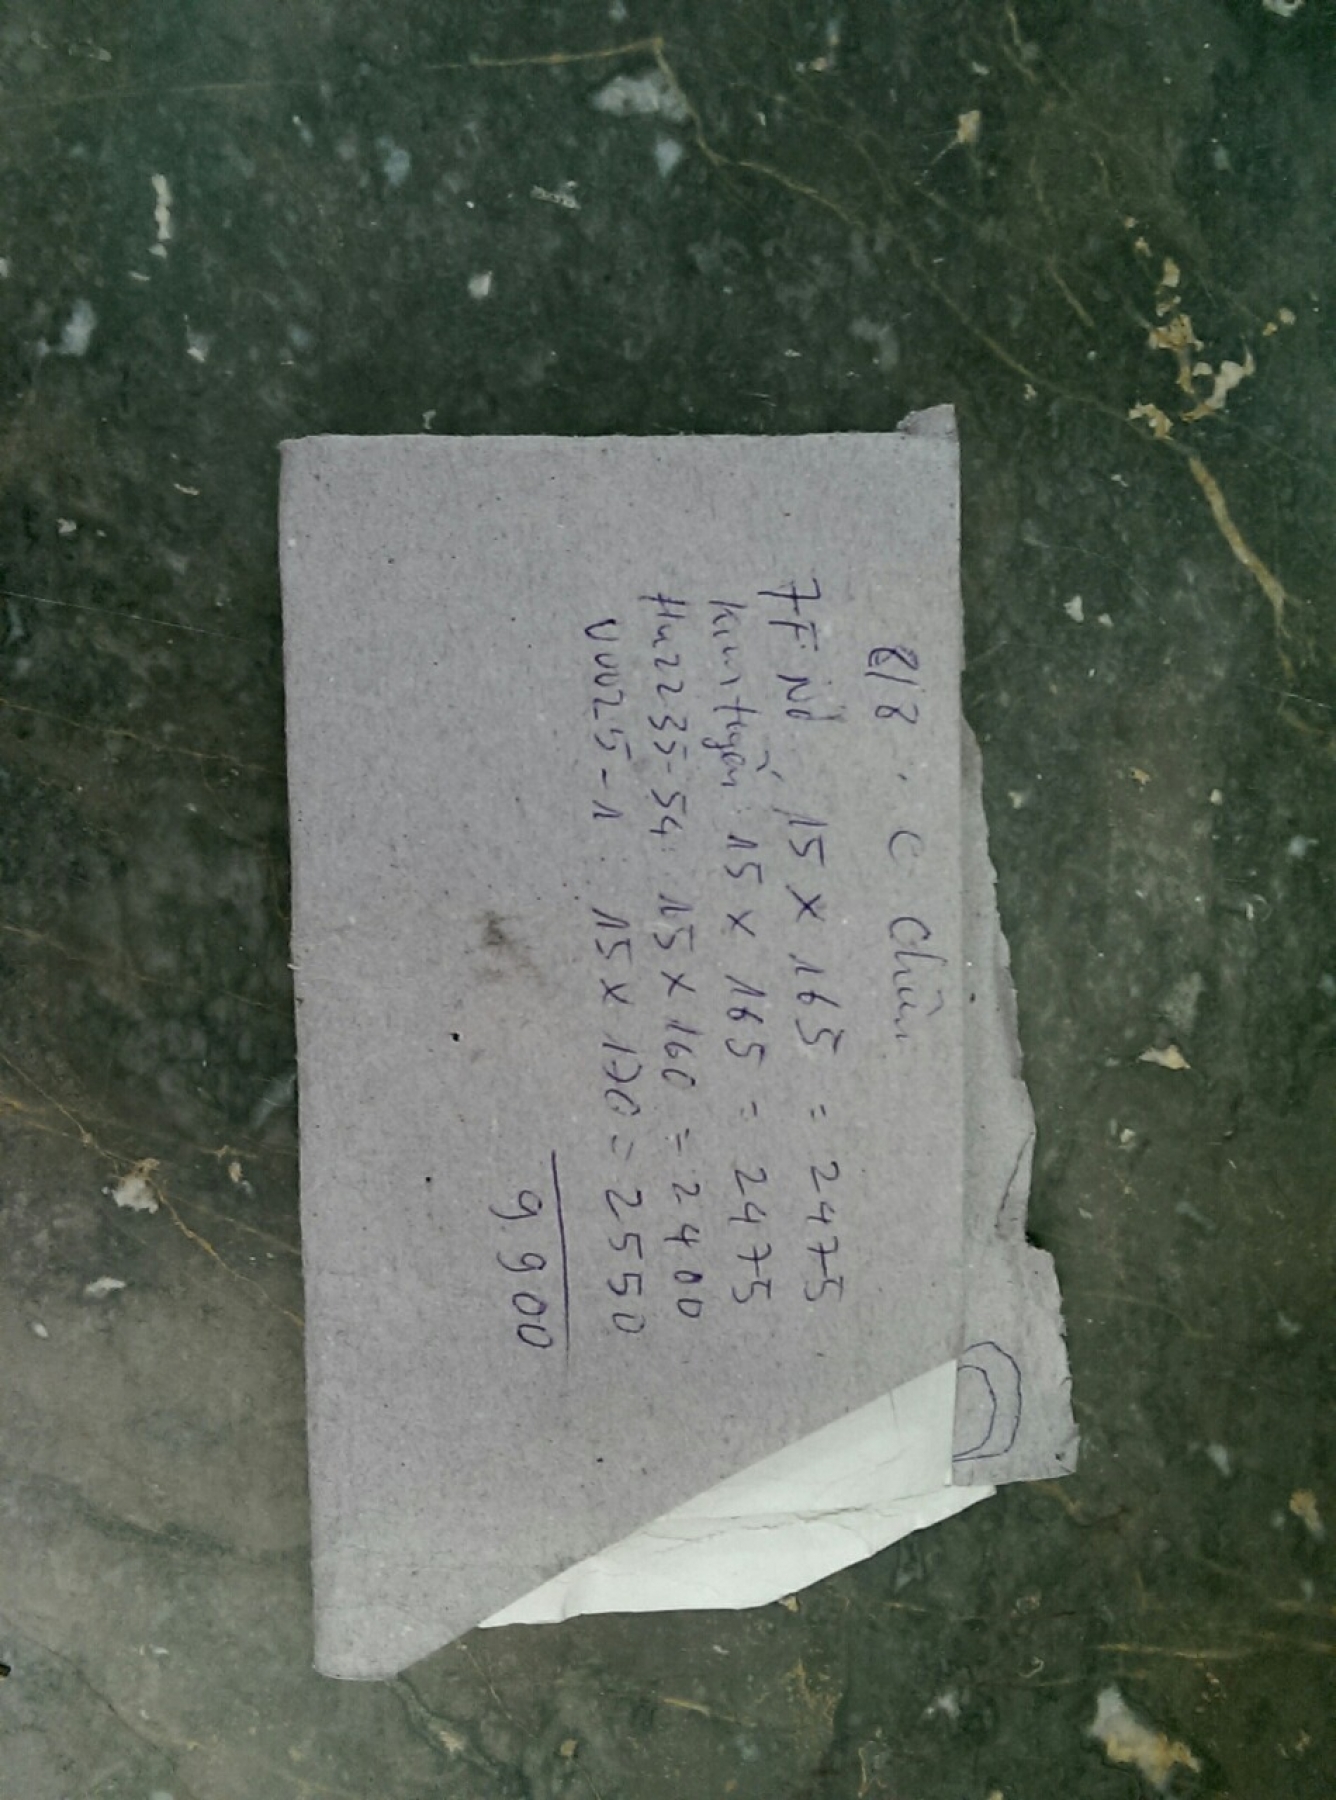 8/8. C Chín
7F Nở 15 x 165 = 2475
Kim tuyến: 15 x 165 = 2475
Hn2235-54: 15 x 160 = 2400
V0025-1: 15 x 170 = 2550
9.900